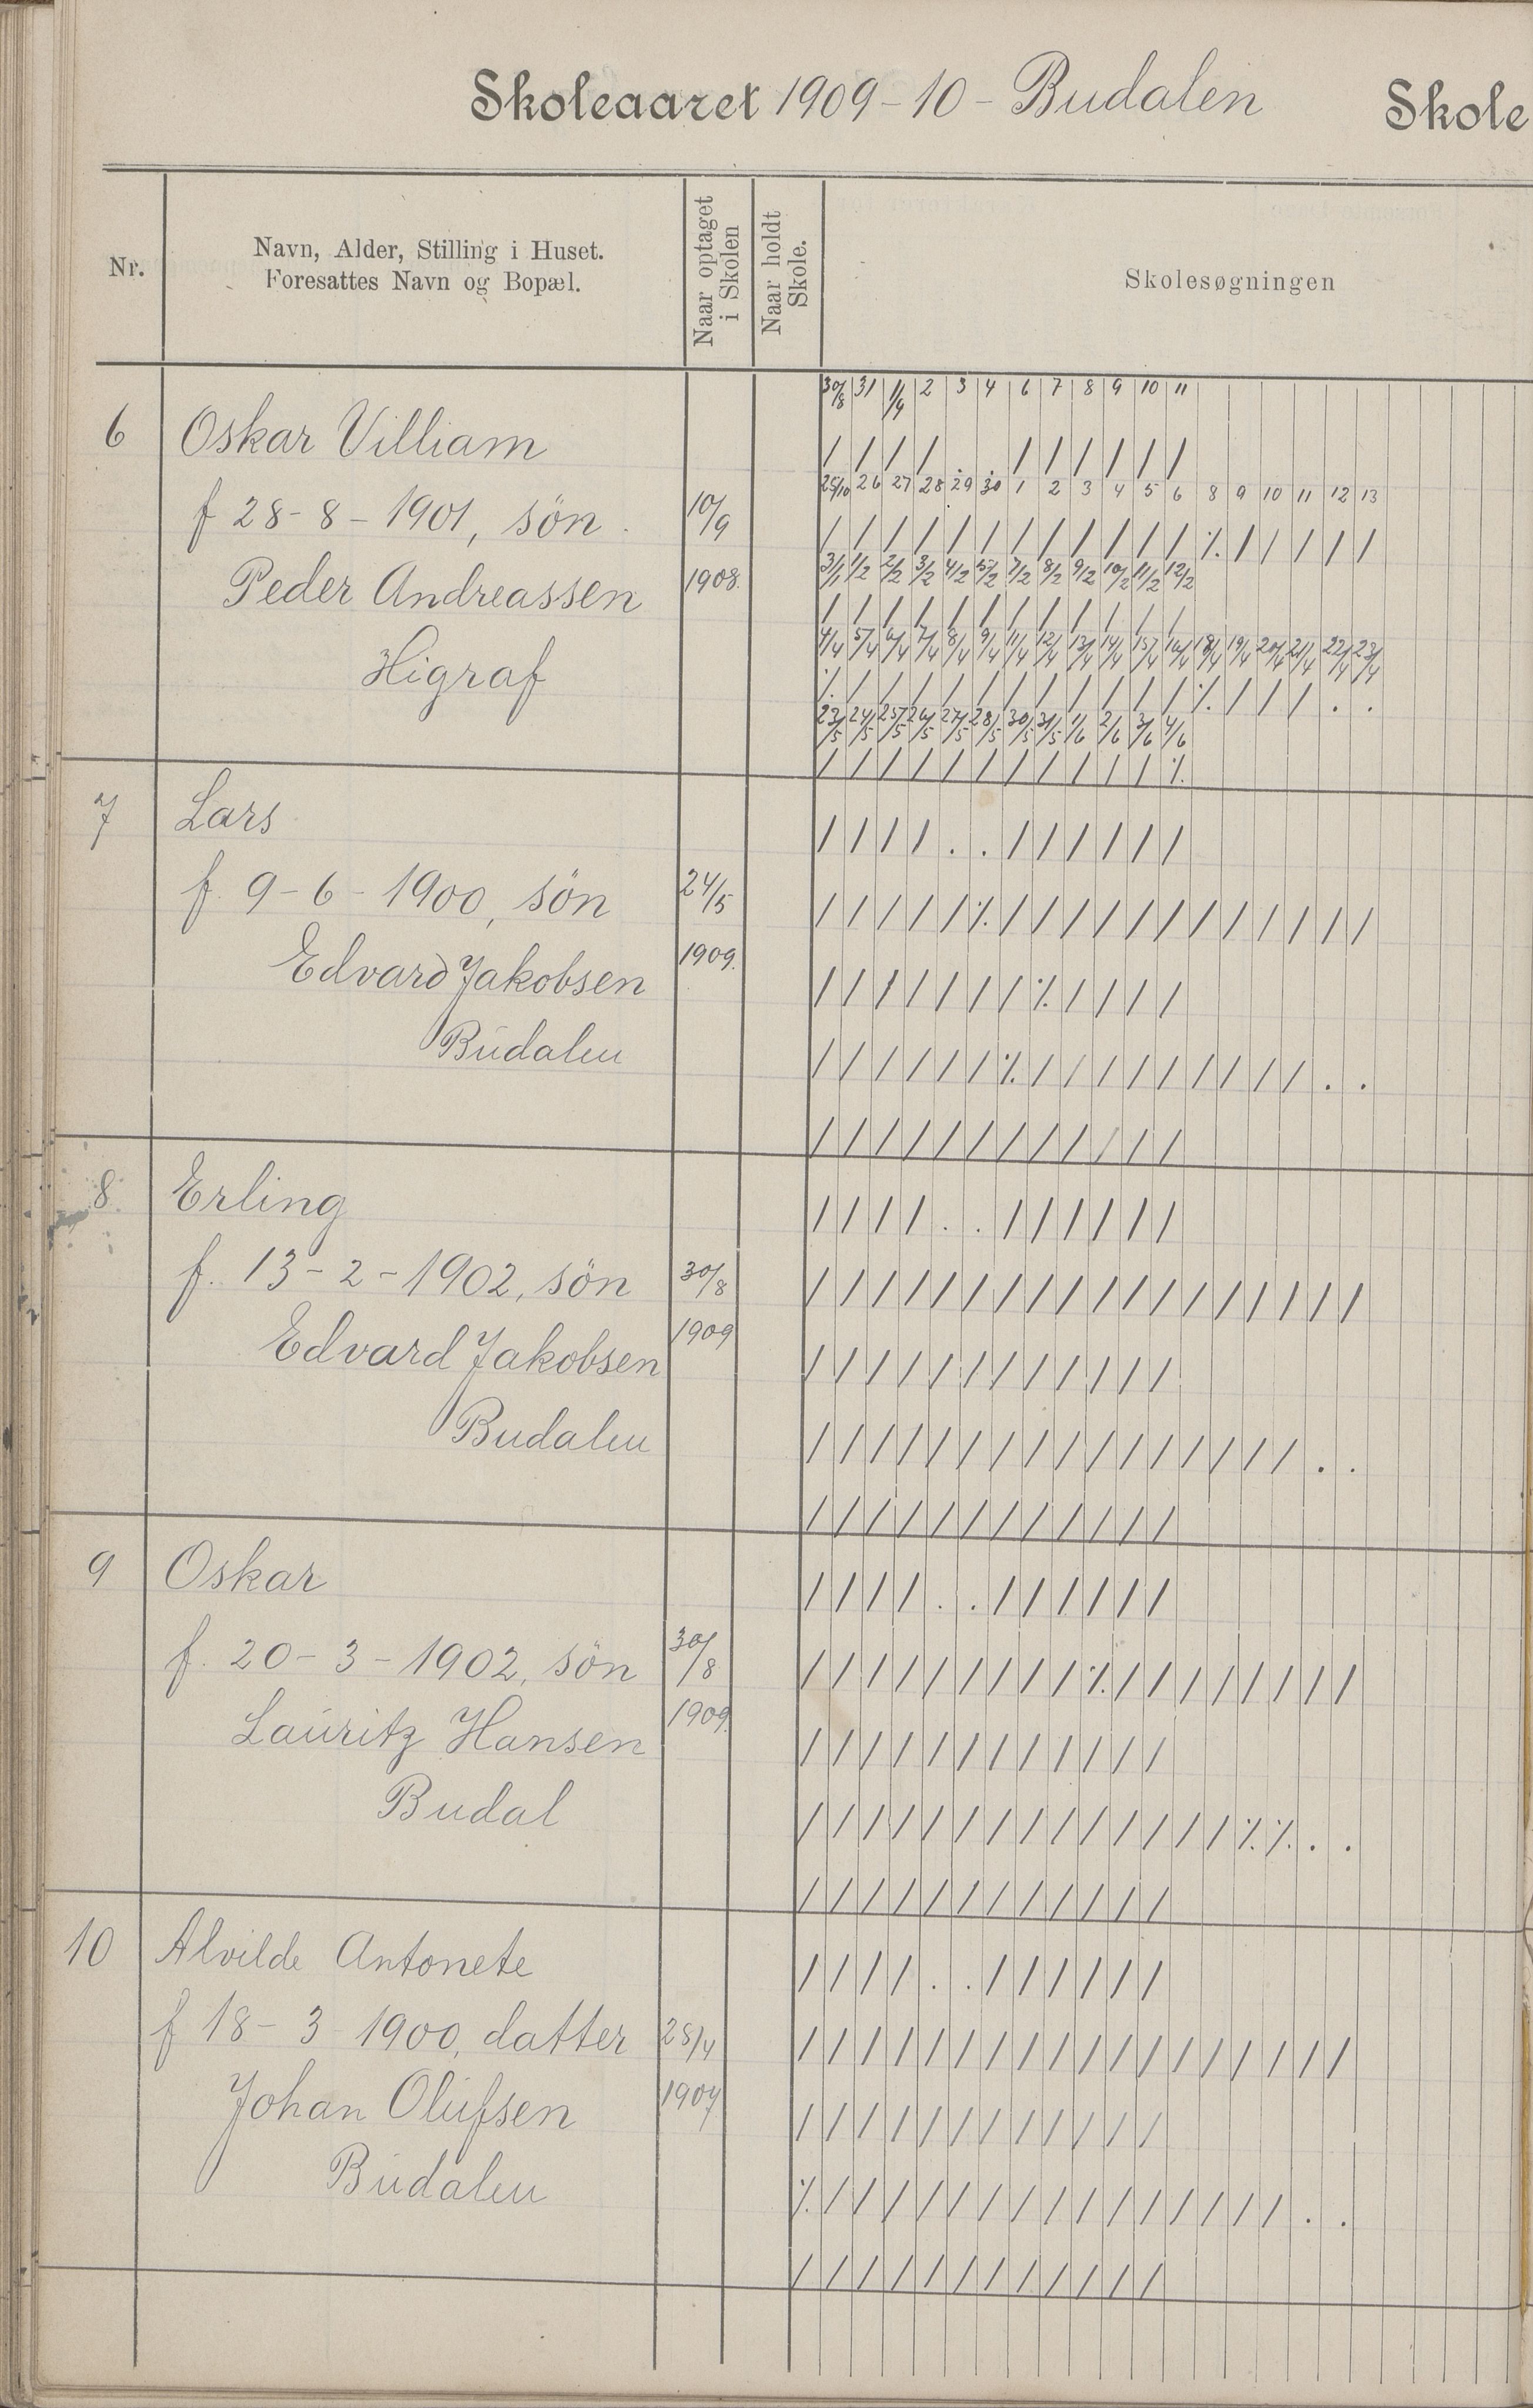 Skoleaaret 1909-10 - Budalen Skole
Nr.
Navn, Alder, Stilling i Huset.
Foresattes Navn og Bopæl.
Naar optaget
i Skolen
Naar holdt
Skole.
Skolesøgningen
30/8 31 1/9 2 3 4 6 7 8 9 10 11
6 Oskar Villiam / / / / . . / / / / / /
25/10 26 27 28 29 30 1 2 3 4 5 6 8 9 10 11 12 13
f 28-8-1901, sön. 10/9 / / / / / / / / / / / / ٪ / / / / /
31/1 1/2 2/2 3/2 4/2 5/2 7/2 8/2 9/2 10/2 11/2 12/2
Peder Andreassen 1908. / / / / / / / / / / / /
4/4 5/4 6/4 7/4 8/4 9/4 11/4 12/4 13/4 14/4 15/4 16/4 18/4 19/4 20/4 21/4 22/4 23/4
Higraf ٪ / / / / / / / / / / / ٪ / / / . .
23/5 24/5 25/5 26/5 27/5 28/5 30/5 31/5 1/6 2/6 3/6 4/6
/ / / / / / / / / / / ٪
7 Lars / / / / . . / / / / / /
f. 9-6-1900, sön 24/5 / / / / / ٪ / / / / / / / / / / / /
Edvard Jakobsen 1909. / / / / / / / ٪ / / / /
Budalen / / / / / / ٪ / / / / / / / / / . .
/ / / / / / / / / / / /
8. Erling / / / / . . / / / / / /
f. 13-2-1902, sön 30/8 / / / / / / / / / / / / / / / / / /
Edvard Jakobsen 1909 / / / / / / / / / / / /
Budalen / / / / / / / / / / / / / / / / . .
/ / / / / / / / / / / /
9 Oskar / / / / . . / / / / / /
f. 20-3-1902, sön 30/8 / / / / / / / / / ٪ / / / / / / / /
Lauritz Hansen 1909. / / / / / / / / / / / /
Budal / / / / / / / / / / / / / / ٪ ٪ . .
/ / / / / / / / / / / /
10 Alvilde Antonete / / / / . . / / / / / /
f 18-3-1900, datter 28/4 / / / / / / / / / / / / / / / / / /
Johan Olufsen 1907 / / / / / / / / / / / /
Budalen ٪ / / / / / / / / / / / / / / / . .
/ / / / / / / / / / / /